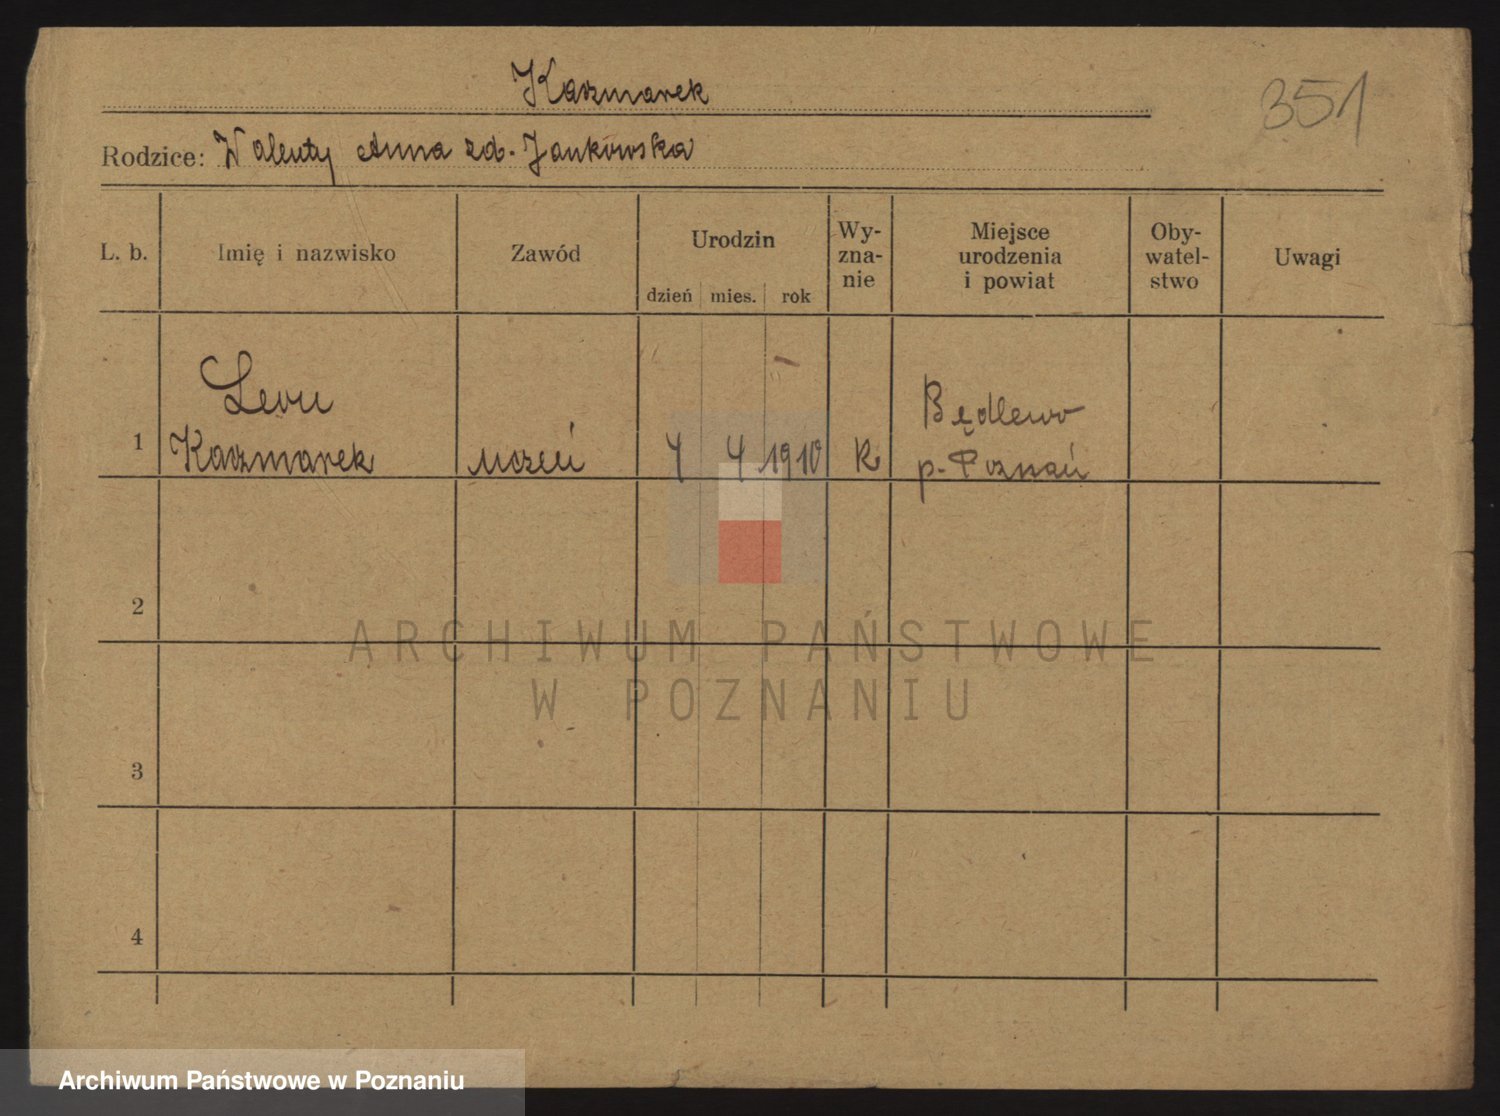 Kaczmarek
351
Rodzice: Walenty Anna zd. Jankowska
L. b.
Imię i nazwisko
Zawód
Urodzin
dzień mies. rok
Wy-
zna-
nie
Miejsce
urodzenia
i powiat
Oby-
watel-
stwo
Uwagi
1
Leon
Kaczmarek
uczeń
4 1910
R
Będlewo
p. Poznań
2
3
4
ARCHIWUM PAŃSTWOWE
W POZNANIU
Archiwum Państwowe w Poznaniu